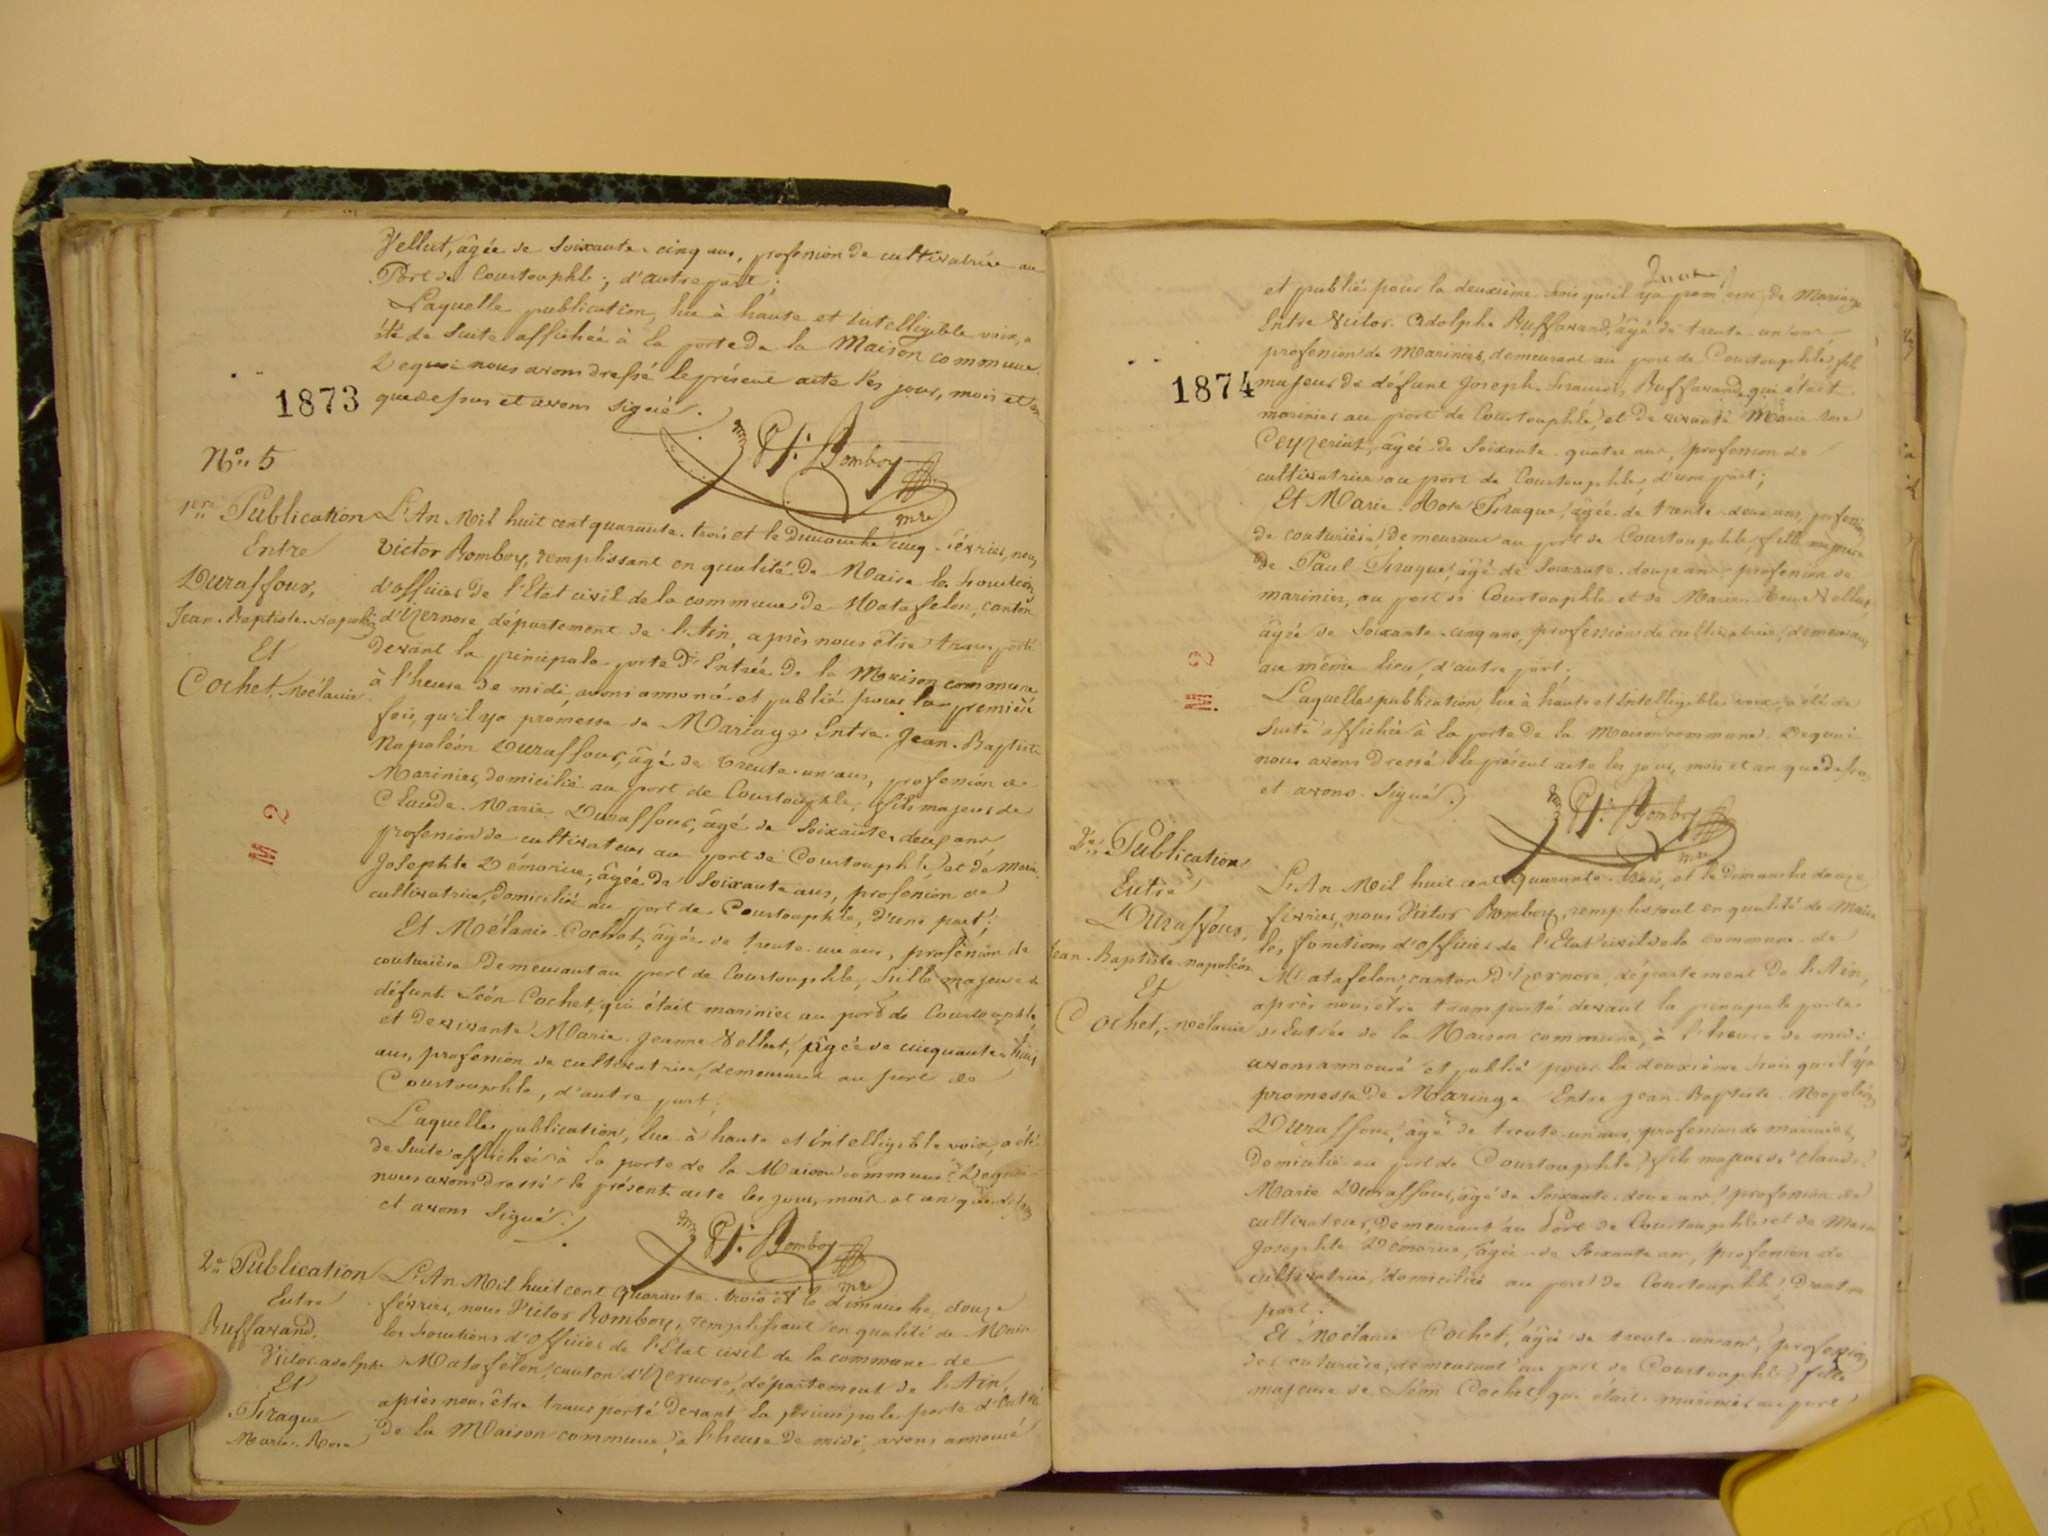 Vellut, âgée de soixante-cinq ans, profession de cultivatrice au
Port de Courtouphle, d'autre part;
Laquelle publication, lue à haute et intelligible voix, a
été de suite affichée à la porte de la Maison commune.
De quoi nous avons dressé le présent acte les jour, mois et an
que dessus et avons signé.
1873
Vt: Bomboy
mre
No. 5
1ere Publication
Entre
Duraffour,
Jean-Baptiste-Napoléon
Et
Cochet, Noélanie
L'An Mil huit cent quarante-trois et le dimanche cinq février, nous
Victor Bomboy, remplissant en qualité de Maire la fonction
d'officier de l'Etat civil de la commune de Matafelon, canton
d'Izernore, département de l'Ain, après nous être transporté
devant la principale porte d'Entrée de la Maison commune
à l'heure de midi, avons annoncé et publié pour la première
fois, qu'il y a promesse de Mariage Entre Jean-Baptiste
Napoléon Duraffour, âgé de trente-un ans, profession de
Marinier, domicilié au port de Courtouphle, fils majeur de
Claude-Marie Duraffour, âgé de soixante-deux ans
profession de cultivateur au port de Courtouphle, et de Marie
Josephte Démorice, âgée de soixante ans, profession de
cultivatrice, domiciliée au port de Courtouphle, d'une part;
Et Noélanie Cochet, âgée de trente-un ans, profession de
couturière demeurant au port de Courtouphle, fille majeure de
défunt Léon Cochet, qui était marinier au port de Courtouphle
et de vivante Marie-Jeanne Vellut, âgée de cinquante-huit
ans, profession de cultivatrice, demeurant au port de
Courtouphle, d'autre part;
Laquelle publication, lue à haute et intelligible voix, a été
de suite affichée à la porte de la Maison commune. De quoi
nous avons dressé le présent acte les jour, mois et an que dessus
et avons signé.
Vt: Bomboy
mre
2e Publication
Entre
Buffavand,
Victor-adolphe
Et
Tiraque
Marie-Rose
L'An Mil huit cent quarante-trois et le dimanche douze
février, nous Victor Bomboy, remplissant en qualité de Maire
les fonctions d'officier de l'Etat civil de la commune de
Matafelon, canton d'Izernore, département de l'Ain,
après nous être transporté devant la principale porte d'Entrée
de la Maison commune, à l'heure de midi, avons annoncé
et publié pour la deuxième fois qu'il y a promesse de Mariage
Entre Victor-Adolphe Buffavand, âgé de trente-un ans
profession de Marinier, demeurant au port de Courtouphle, fils
1874
majeur de défunt Joseph-François Buffavand, qui était
marinier au port de Courtouphle, et de vivante Marie-Rose
Ceyzeriat, âgée de soixante-quatre ans, profession de
cultivatrice au port de Courtouphle, d'une part;
Et Marie-Rose Tiraque, âgée de trente-deux ans, profession
de couturière, demeurant au port de Courtouphle, fille majeure
de Paul Tiraque, âgé de soixante-douze ans profession de
marinier, au port de Courtouphle et de Marie Vellut,
âgée de soixante-cinq ans, profession de cultivatrice, demeurant
au même lieu, d'autre part;
Laquelle publication, lue à haute et intelligible voix, a été de
suite affichée à la porte de la Maison commune. De quoi
nous avons dressé le présent acte les jour, mois et an que dessus
et avons signé.
Vt: Bomboy
mre
2e Publication
Entre
Duraffour,
Jean-Baptiste-Napoléon
Et
Cochet, Noélanie
L'An Mil huit cent quarante-trois, et le dimanche douze
février, nous Victor Bomboy, remplissant en qualité de Maire
les fonctions d'officier de l'Etat civil de la commune de
Matafelon, canton d'Izernore, département de l'Ain,
après nous être transporté devant la principale porte
d'Entrée de la Maison commune, à l'heure de midi
avons annoncé et publié pour la deuxième fois qu'il y a
promesse de Mariage Entre Jean-Baptiste-Napoléon
Duraffour, âgé de trente-un ans, profession de marinier,
domicilié au port de Courtouphle, fils majeur de Claude
Marie Duraffour, âgé de soixante-deux ans, profession de
cultivateur, demeurant au Port de Courtouphle et de Marie
Josephte Démorice, âgée de soixante ans, profession de
cultivatrice, domiciliée au port de Courtouphle, d'autre
part.
Et Noélanie Cochet, âgée de trente-un ans, profession
de couturière, demeurant au port de Courtouphle, fille
majeure de Léon Cochet, qui était marinier au port
M 2
M. 2